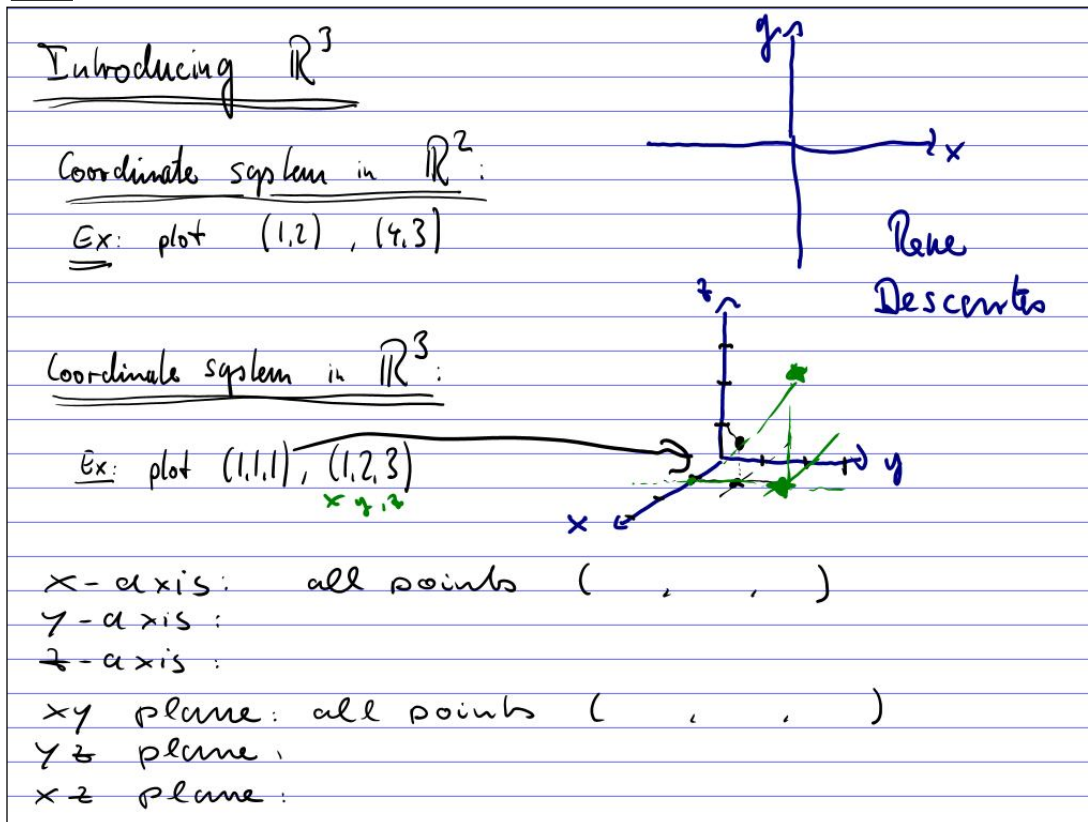 Introducing ℝ³
y
x
Coordinate system in ℝ²:
Ex: plot (1,2) , (4,3)
Rene
Descartes
z
Coordinate system in ℝ³:
Ex: plot (1,1,1) , (1,2,3)
x y , z
y
x
x-axis: all points ( , , )
y-axis:
z-axis:
xy plane: all points ( , , )
yz plane:
xz plane: